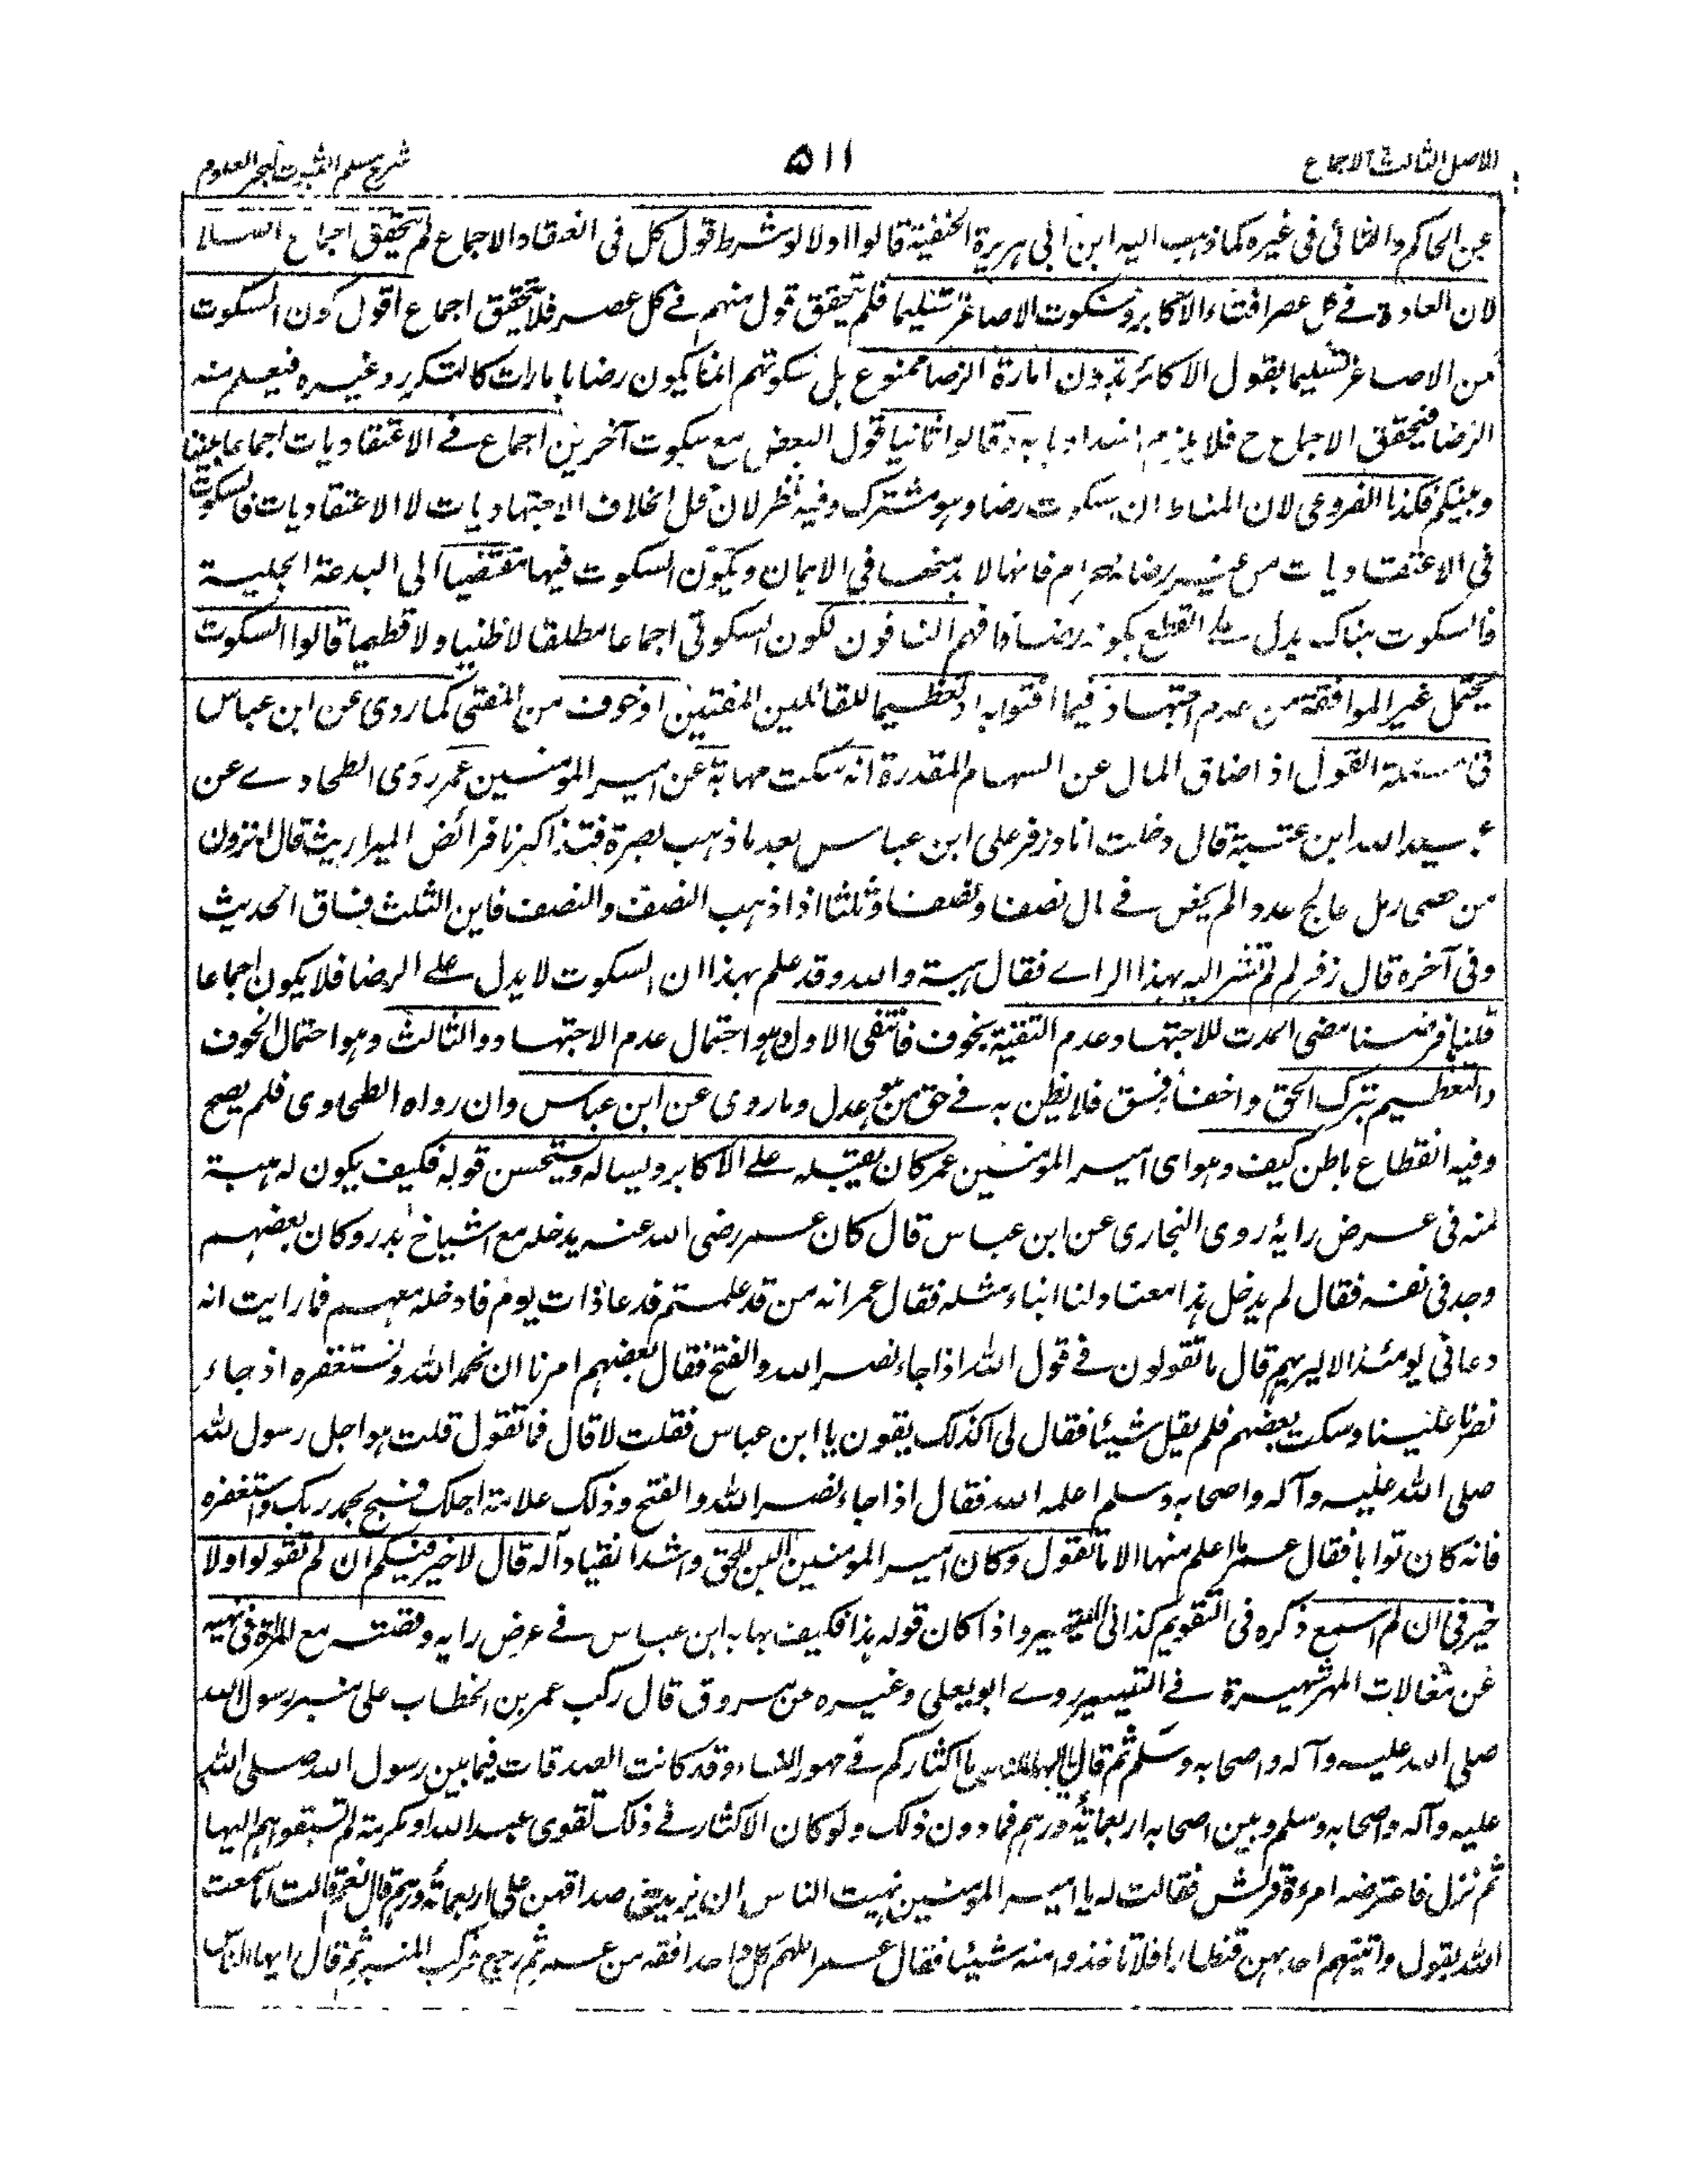 الاصل الثالث الاجماع
٥١١
شرح مسلم الثبوت لبحر العلوم
عن الحاكم والثاني في غيره كما ذهب اليه ابن ابي هريرة الحنفية قالوا اولا لو شرط قول كل في انعقاد الاجماع لم يتحقق اجماع اصلا
لان العادة في كل عصر افتاء الاكابر وسكوت الاصاغر تسليما فلم يتحقق قول منهم في كل عصر فلا يتحقق اجماع اقول كون السكوت
من الاصاغر تسليما بقول الاكابر بدون امارة الرضا ممنوع بل سكوتهم انما يكون رضا بامارات كالتكرير وغيره فيعلم منه
الرضا فيتحقق الاجماع ح فلا يلزم انسداد بابه وقالوا ثانيا قول البعض مع سكوت آخرين اجماع في الاعتقاديات اجماعا بيننا
وبينكم فكذا الفروعي لان المناط ان السكوت رضا وهو مشترك وفيه نظر لان محل الخلاف الاجتهاديات لا الاعتقاديات فالسكوت
في الاعتقاديات من غير رضا حرام فانها لا بد منها في الايمان ويكون السكوت فيها مقتضيا الى البدعة الجلية
فالسكوت هناك يدل على القطع بكونه رضا فافهم النافون لكون السكوتي اجماعا مطلقا لا ظنيا ولا قطعيا قالوا السكوت
يحتمل غير الموافقة من عدم اجتهاد فيما افتوا به او تعظيما للقائلين المفتين او خوف من المفتي كما روى عن ابن عباس
في مسئلة العول اذا ضاق المال عن السهام المقدرة انه سكت مهابة عن امير المومنين عمر روى الطحاوي عن
عبيد الله ابن عتبة قال دخلت انا وزفر على ابن عباس بعد ما ذهب بصرة فتذاكرنا فرائض الميراريث قال اترون
من احصى رمل عالج عددا لم يحص في مال نصفا ونصفا وثلثا اذا ذهب النصف والنصف فاين الثلث فساق الحديث
وفي آخره قال زفر لم لم تشر اليه بهذا الراي فقال هيبة والله وقد علم بهذا ان السكوت لا يدل على الرضا فلا يكون اجماعا
قلنا فرضنا مضى المدت للاجتهاد وعدم التقية بخوف فانتفى الاول وهو احتمال عدم الاجتهاد والثالث وهو احتمال الخوف
والتعظيم بترك الحق واخفاء فسق فلا يظن به في حق من هو عدل وما روى عن ابن عباس وان رواه الطحاوي فلم يصح
وفيه انقطاع باطن كيف وهو اي امير المومنين عمر كان يقبله على الاكابر ويساله ويستحسن قوله فكيف يكون له هيبة
منه في عرض رايه روى البخاري عن ابن عباس قال كان عمر رضى الله عنه يدخله مع اشياخ بدر وكان بعضهم
وجد في نفسه فقال لم يدخل هذا معنا ولنا ابناء مثله فقال عمر انه من قد علمتم فدعا ذات يوم فادخله معهم فما رايت انه
دعاني يومئذ الا ليريهم قال ما تقولون في قول الله اذا جاء نصر الله والفتح فقال بعضهم امرنا ان نحمد الله ونستغفره اذ جاء
نصرنا علينا وسكت بعضهم فلم يقل شيئا فقال لى اكذلك يقون يا ابن عباس فقلت لا قال فما تقول قلت هو اجل رسول لله
صلى الله عليه وآله واصحابه وسلم اعلمه الله فقال اذا جاء نصر الله والفتح وذلك علامة اجلك فسبح بحمد ربك واستغفره
فانه كان توابا فقال عمر ما اعلم منها الا ما تقول وكان امير المومنين الين للحق واشد انقيادا له قال لا خير فيكم ان لم تقولوا ولا
خير في ان لم اسمع ذكره في التقويم كذا في التيسير واذا كان قوله هذا فكيف يهابه ابن عباس في عرض رايه وقصته مع المرأة في نهيه
عن مغالات المهر شهيرة في التيسير روى ابو يعلى وغيره عن مسروق قال ركب عمر بن الخطاب على منبر رسول الله
صلى الله عليه وآله واصحابه وسلم ثم قال ايها الناس ما اكثاركم في مهور النساء وقد كانت الصدقات فيما بين رسول الله صلى الله
عليه وآله واصحابه وسلم وبين اصحابه اربعمائة درهم فما دون ذلك ولو كان الاكثار في ذلك تقوى عبد الله او مكرمة لم تسبقوهم اليها
ثم نزل فاعترضه امرءة قريش فقالت له يا امير المومنين نهيت الناس ان يزيد في صداقهن على اربعمائة درهم قال نعم قالت اما سمعت
الله يقول وآتيتم احدهن قنطارا فلا تاخذوا منه شيئا فقال عمر اللهم كل واحد افقه من عمر ثم رجع فركب المنبر ثم قال ايها الناس